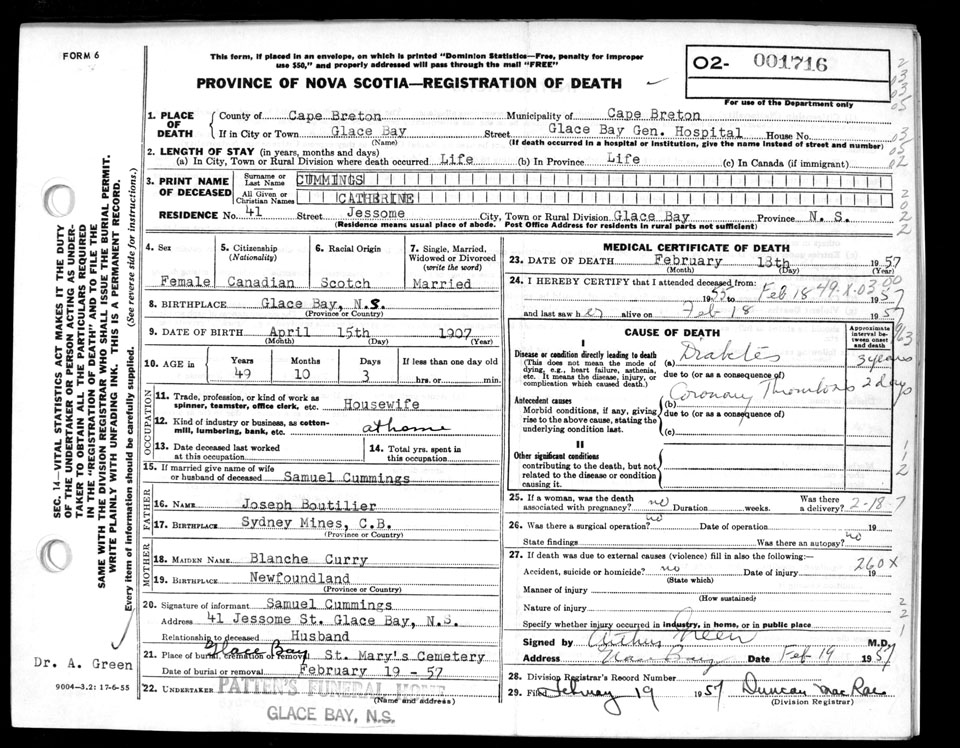 FORM 6
This form, if placed in an envelope, on which is printed "Dominion Statistics—Free, penalty for improper
use $50," and properly addressed will pass through the mail "FREE"
PROVINCE OF NOVA SCOTIA—REGISTRATION OF DEATH
O2- 001716
For use of the Department only
1. PLACE OF DEATH
County of Cape Breton Municipality of Cape Breton
If in City or Town Glace Bay Street Glace Bay Gen. Hospital House No.
(Name) (If death occurred in a hospital or institution, give the name instead of street and number)
2. LENGTH OF STAY (in years, months and days)
(a) In City, Town or Rural Division where death occurred Life (b) In Province Life (c) In Canada (if immigrant)
3. PRINT NAME OF DECEASED
Surname or Last Name CUMMINGS
All Given or Christian Names CATHERINE
RESIDENCE No. 41 Street Jessome City, Town or Rural Division Glace Bay Province N. S.
(Residence means usual place of abode. Post Office Address for residents in rural parts not sufficient)
4. Sex Female
5. Citizenship (Nationality) Canadian
6. Racial Origin Scotch
7. Single, Married, Widowed or Divorced (write the word) Married
8. BIRTHPLACE Glace Bay, N.S.
(Province or Country)
9. DATE OF BIRTH April 15th 1907
(Month) (Day) (Year)
10. AGE in Years 49 Months 10 Days 3 If less than one day old hrs. or min.
OCCUPATION
11. Trade, profession, or kind of work as spinner, teamster, office clerk, etc. Housewife
12. Kind of industry or business, as cotton-mill, lumbering, bank, etc. at home
13. Date deceased last worked at this occupation
14. Total yrs. spent in this occupation
15. If married give name of wife or husband of deceased Samuel Cummings
FATHER
16. NAME Joseph Boutilier
17. BIRTHPLACE Sydney Mines, C.B.
(Province or Country)
MOTHER
18. MAIDEN NAME Blanche Curry
19. BIRTHPLACE Newfoundland
(Province or Country)
20. Signature of informant Samuel Cummings
Address 41 Jessome St. Glace Bay, N.S.
Relationship to deceased Husband
21. Place of burial, cremation or removal Glace Bay St. Mary's Cemetery
Date of burial or removal February 19 - 57
22. UNDERTAKER PATTEN'S FUNERAL HOME
(Name and address)
GLACE BAY, N.S.
MEDICAL CERTIFICATE OF DEATH
23. DATE OF DEATH February 18th 1957
(Month) (Day) (Year)
24. I HEREBY CERTIFY that I attended deceased from:
1955 to Feb 18 1957
49-X-03 00
and last saw her alive on Feb 18 1957
CAUSE OF DEATH
Approximate interval between onset and death
I
Disease or condition directly leading to death
(This does not mean the mode of dying, e.g., heart failure, asthenia, etc. It means the disease, injury, or complication which caused death.)
(a) Diabetes 3 years
due to (or as a consequence of)
Antecedent causes
Morbid conditions, if any, giving rise to the above cause, stating the underlying condition last.
(b) Coronary Thrombosis 2 days
due to (or as a consequence of)
(c)
II
Other significant conditions
contributing to the death, but not related to the disease or condition causing it.
25. If a woman, was the death associated with pregnancy? no Duration weeks. Was there a delivery? 2-18 7
26. Was there a surgical operation? no Date of operation 19
State findings Was there an autopsy? no
27. If death was due to external causes (violence) fill in also the following:—
Accident, suicide or homicide? no Date of injury 19
(State which)
260X
Manner of injury
(How sustained)
Nature of injury
Specify whether injury occurred in industry, in home, or in public place
Signed by Arthur Green M.D.
Address Glace Bay Date Feb 19 1957
28. Division Registrar's Record Number
29. Filed February 19 1957 Duncan MacRae
(Division Registrar)
SEC. 14—VITAL STATISTICS ACT MAKES IT THE DUTY
OF THE UNDERTAKER OR PERSON ACTING AS UNDER-
TAKER TO OBTAIN ALL THE PARTICULARS REQUIRED
IN THE "REGISTRATION OF DEATH" AND TO FILE THE
SAME WITH THE DIVISION REGISTRAR WHO SHALL ISSUE THE BURIAL PERMIT.
WRITE PLAINLY WITH UNFADING INK. THIS IS A PERMANENT RECORD.
Every item of information should be carefully supplied. (See reverse side for instructions.)
Dr. A. Green
9004-3.2: 17-6-55